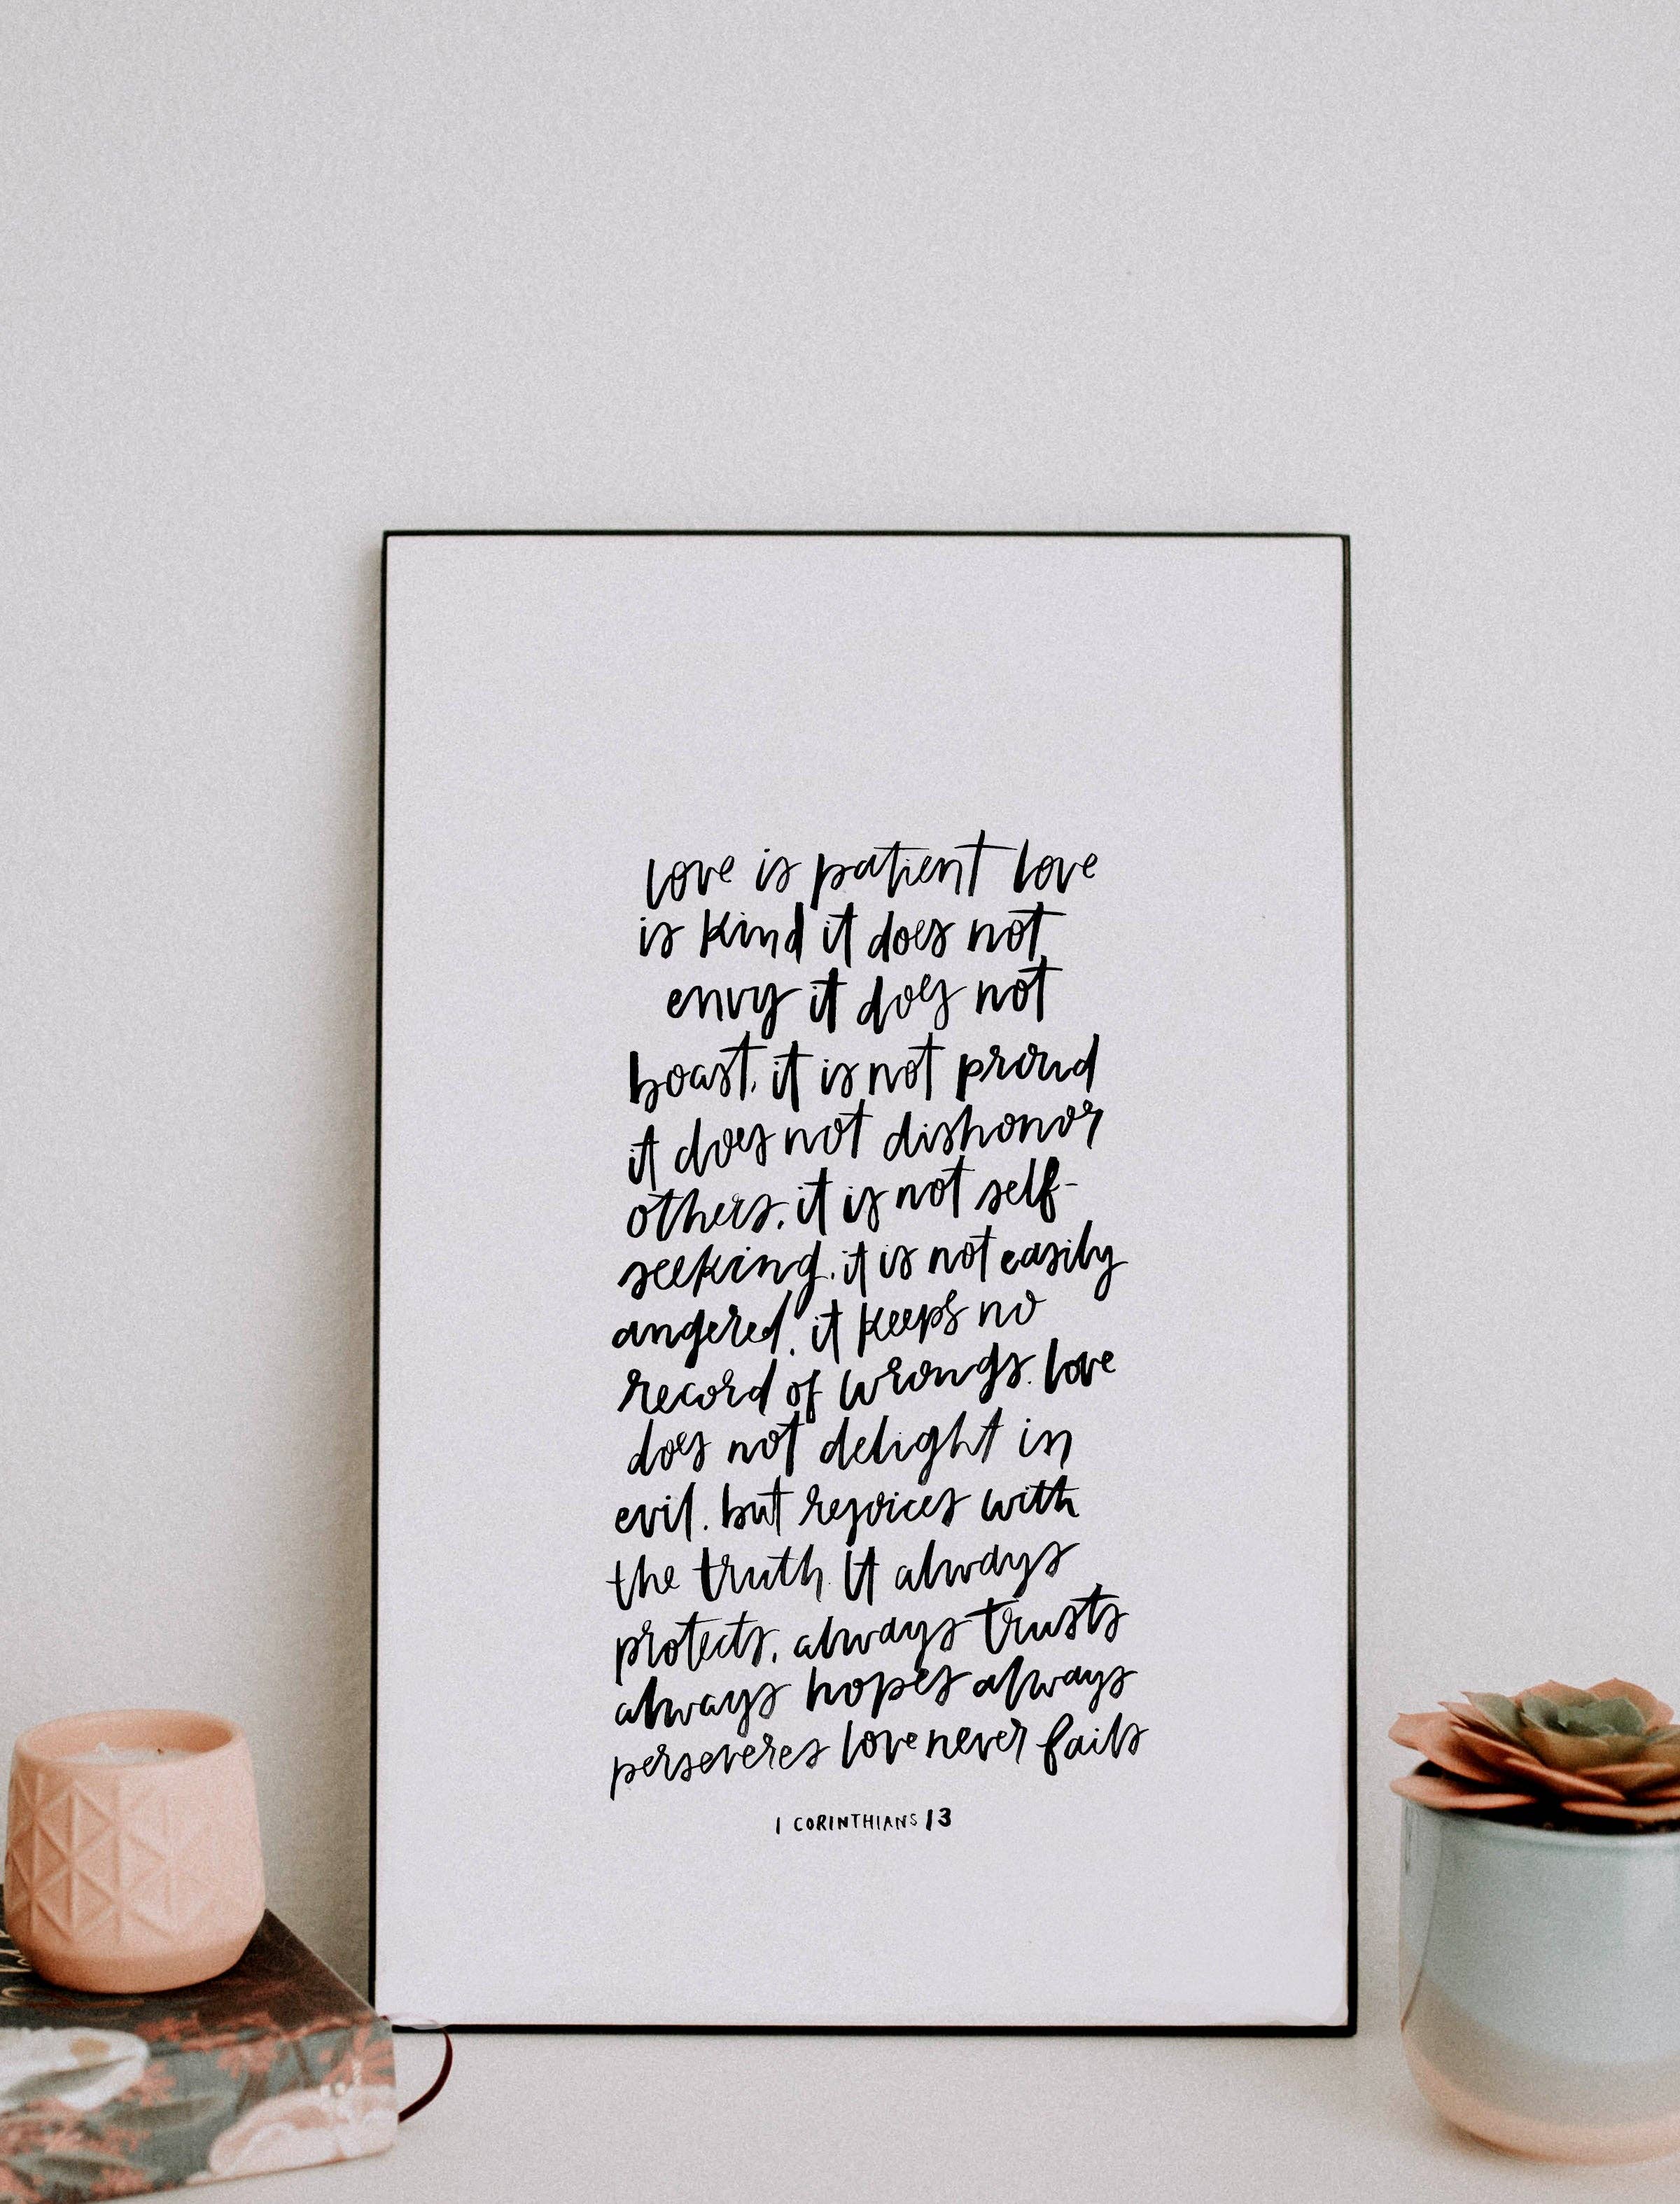 love is patient love
is kind it does not
envy it does not
boast, it is not proud
it does not dishonor
others, it is not self-
seeking, it is not easily
angered, it keeps no
record of wrongs. love
does not delight in
evil. but rejoices with
the truth. It always
protects, always trusts
always hopes always
perseveres love never fails
1 CORINTHIANS 13